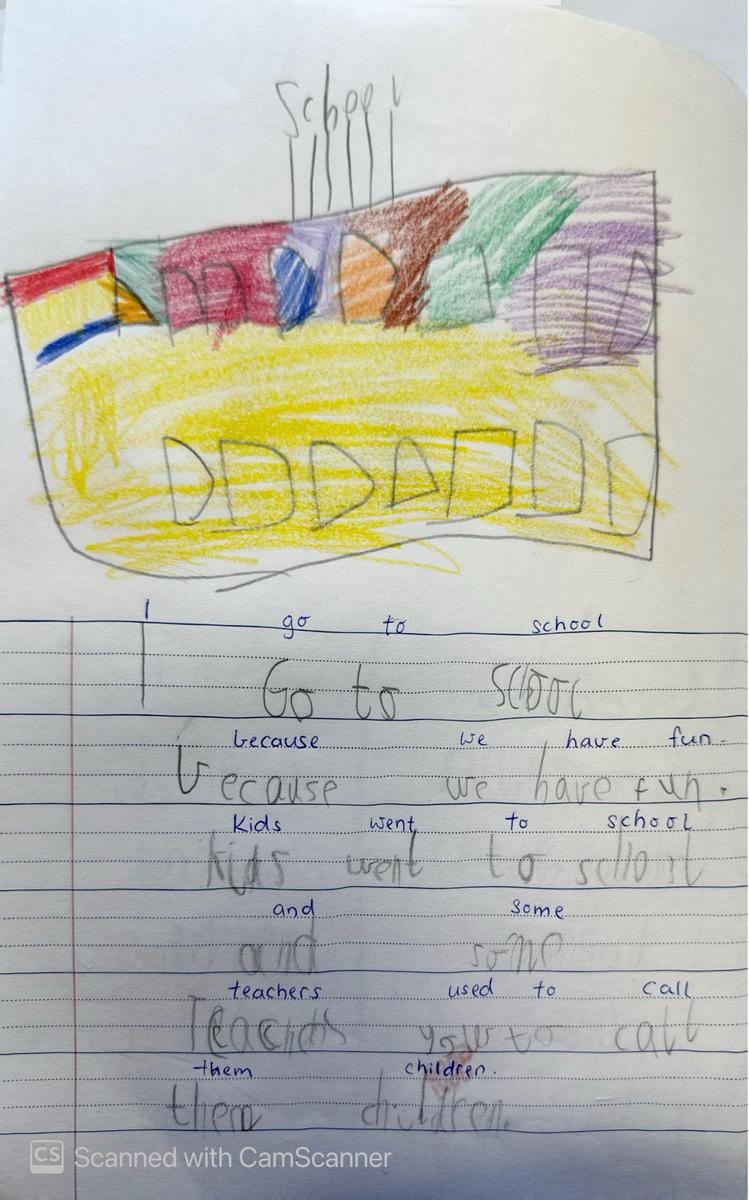 School
I go to school
I Go to school
because we have fun.
because we have fun.
Kids went to school
kids went to school
and some
and some
teachers used to call
Teachers to call
them children.
them children.
CS Scanned with CamScanner